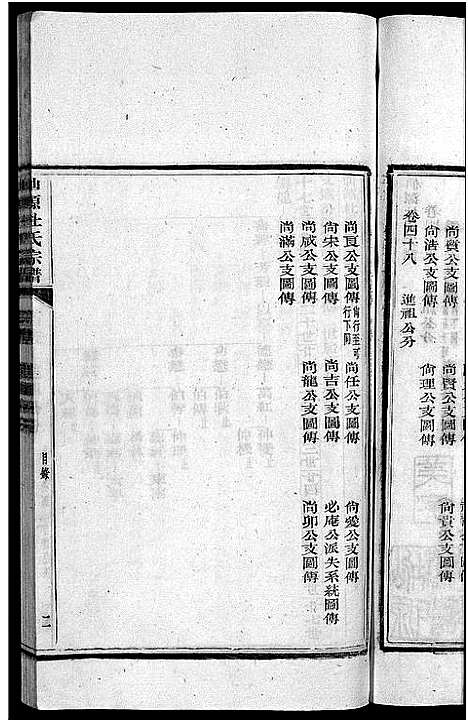 尚賢公支圖傳
尚貴公支圖傳
尚浩公支圖傳
尚理公支圖傳
卷四十八 進祖公分
尚亘公支圖傳 尚行至可行下同
尚任公支圖傳
尚愛公支圖傳
尚宋公支圖傳
尚吉公支圖傳
必庵公派失系統圖傳
尚成公支圖傳
尚龍公支圖傳
尚卯公支圖傳
尚滿公支圖傳
仙源杜氏宗譜
目錄
二